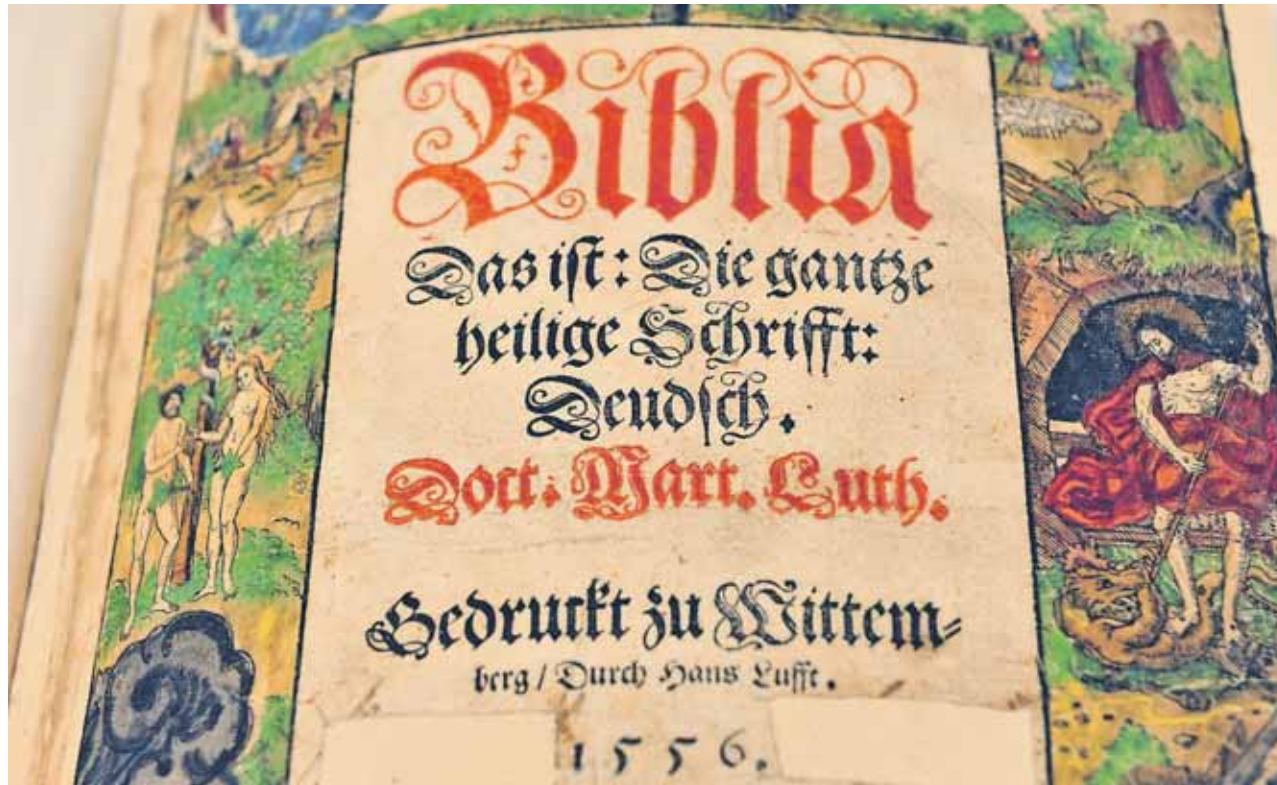 Biblia
Das iſt: Die gantze
heilige Schrifft:
Deudſch.
Doct. Mart. Luth.
Gedruckt zu Wittem⸗
berg / Durch Hans Lufft.
1556.